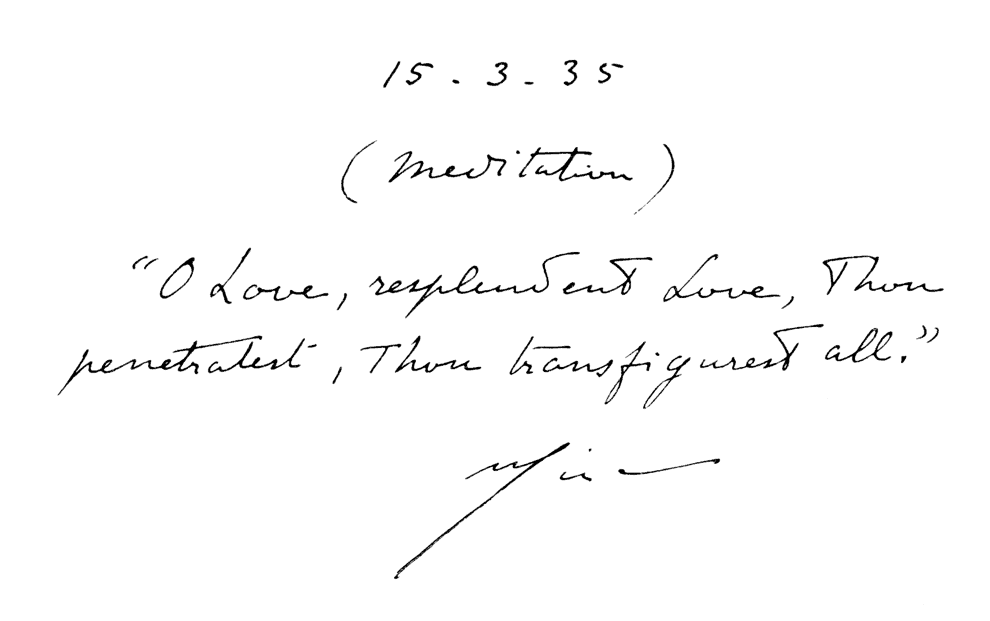 15.3.35
(Meditation)
"O Love, resplendent Love, Thou
penetratest, Thou transfigurest all."